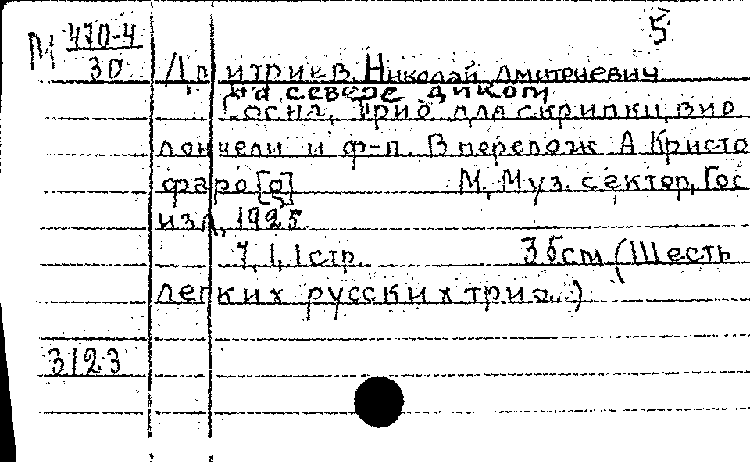 5
М 470-4
30
Дмитриев, Николай Дмитриевич
на севере диком
Сосна, Трио для скрипки, вио
лончели и ф-п. В перелож. А Кристо
фаро[о] М, Муз. сектор, Гос
изд, 1925
7, 1, 1 стр. 35cm (Шесть
легких русских трио..)
3123